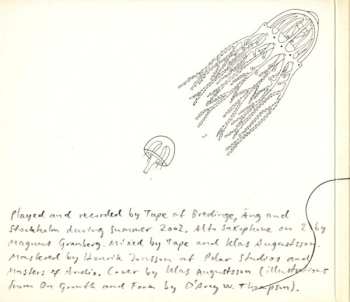 Played and recorded by Tape at Bredinge, Äng and
Stockholm during summer 2002. Alto Saxophone on 2 by
Magnus Granberg. Mixed by Tape and Klas Augustsson.
Mastered by Henrik Jonsson at Polar Studios and
Masters of Audio. Cover by Klas Augustsson (illustrations
from On Growth and Form by D'Arcy W. Thompson).